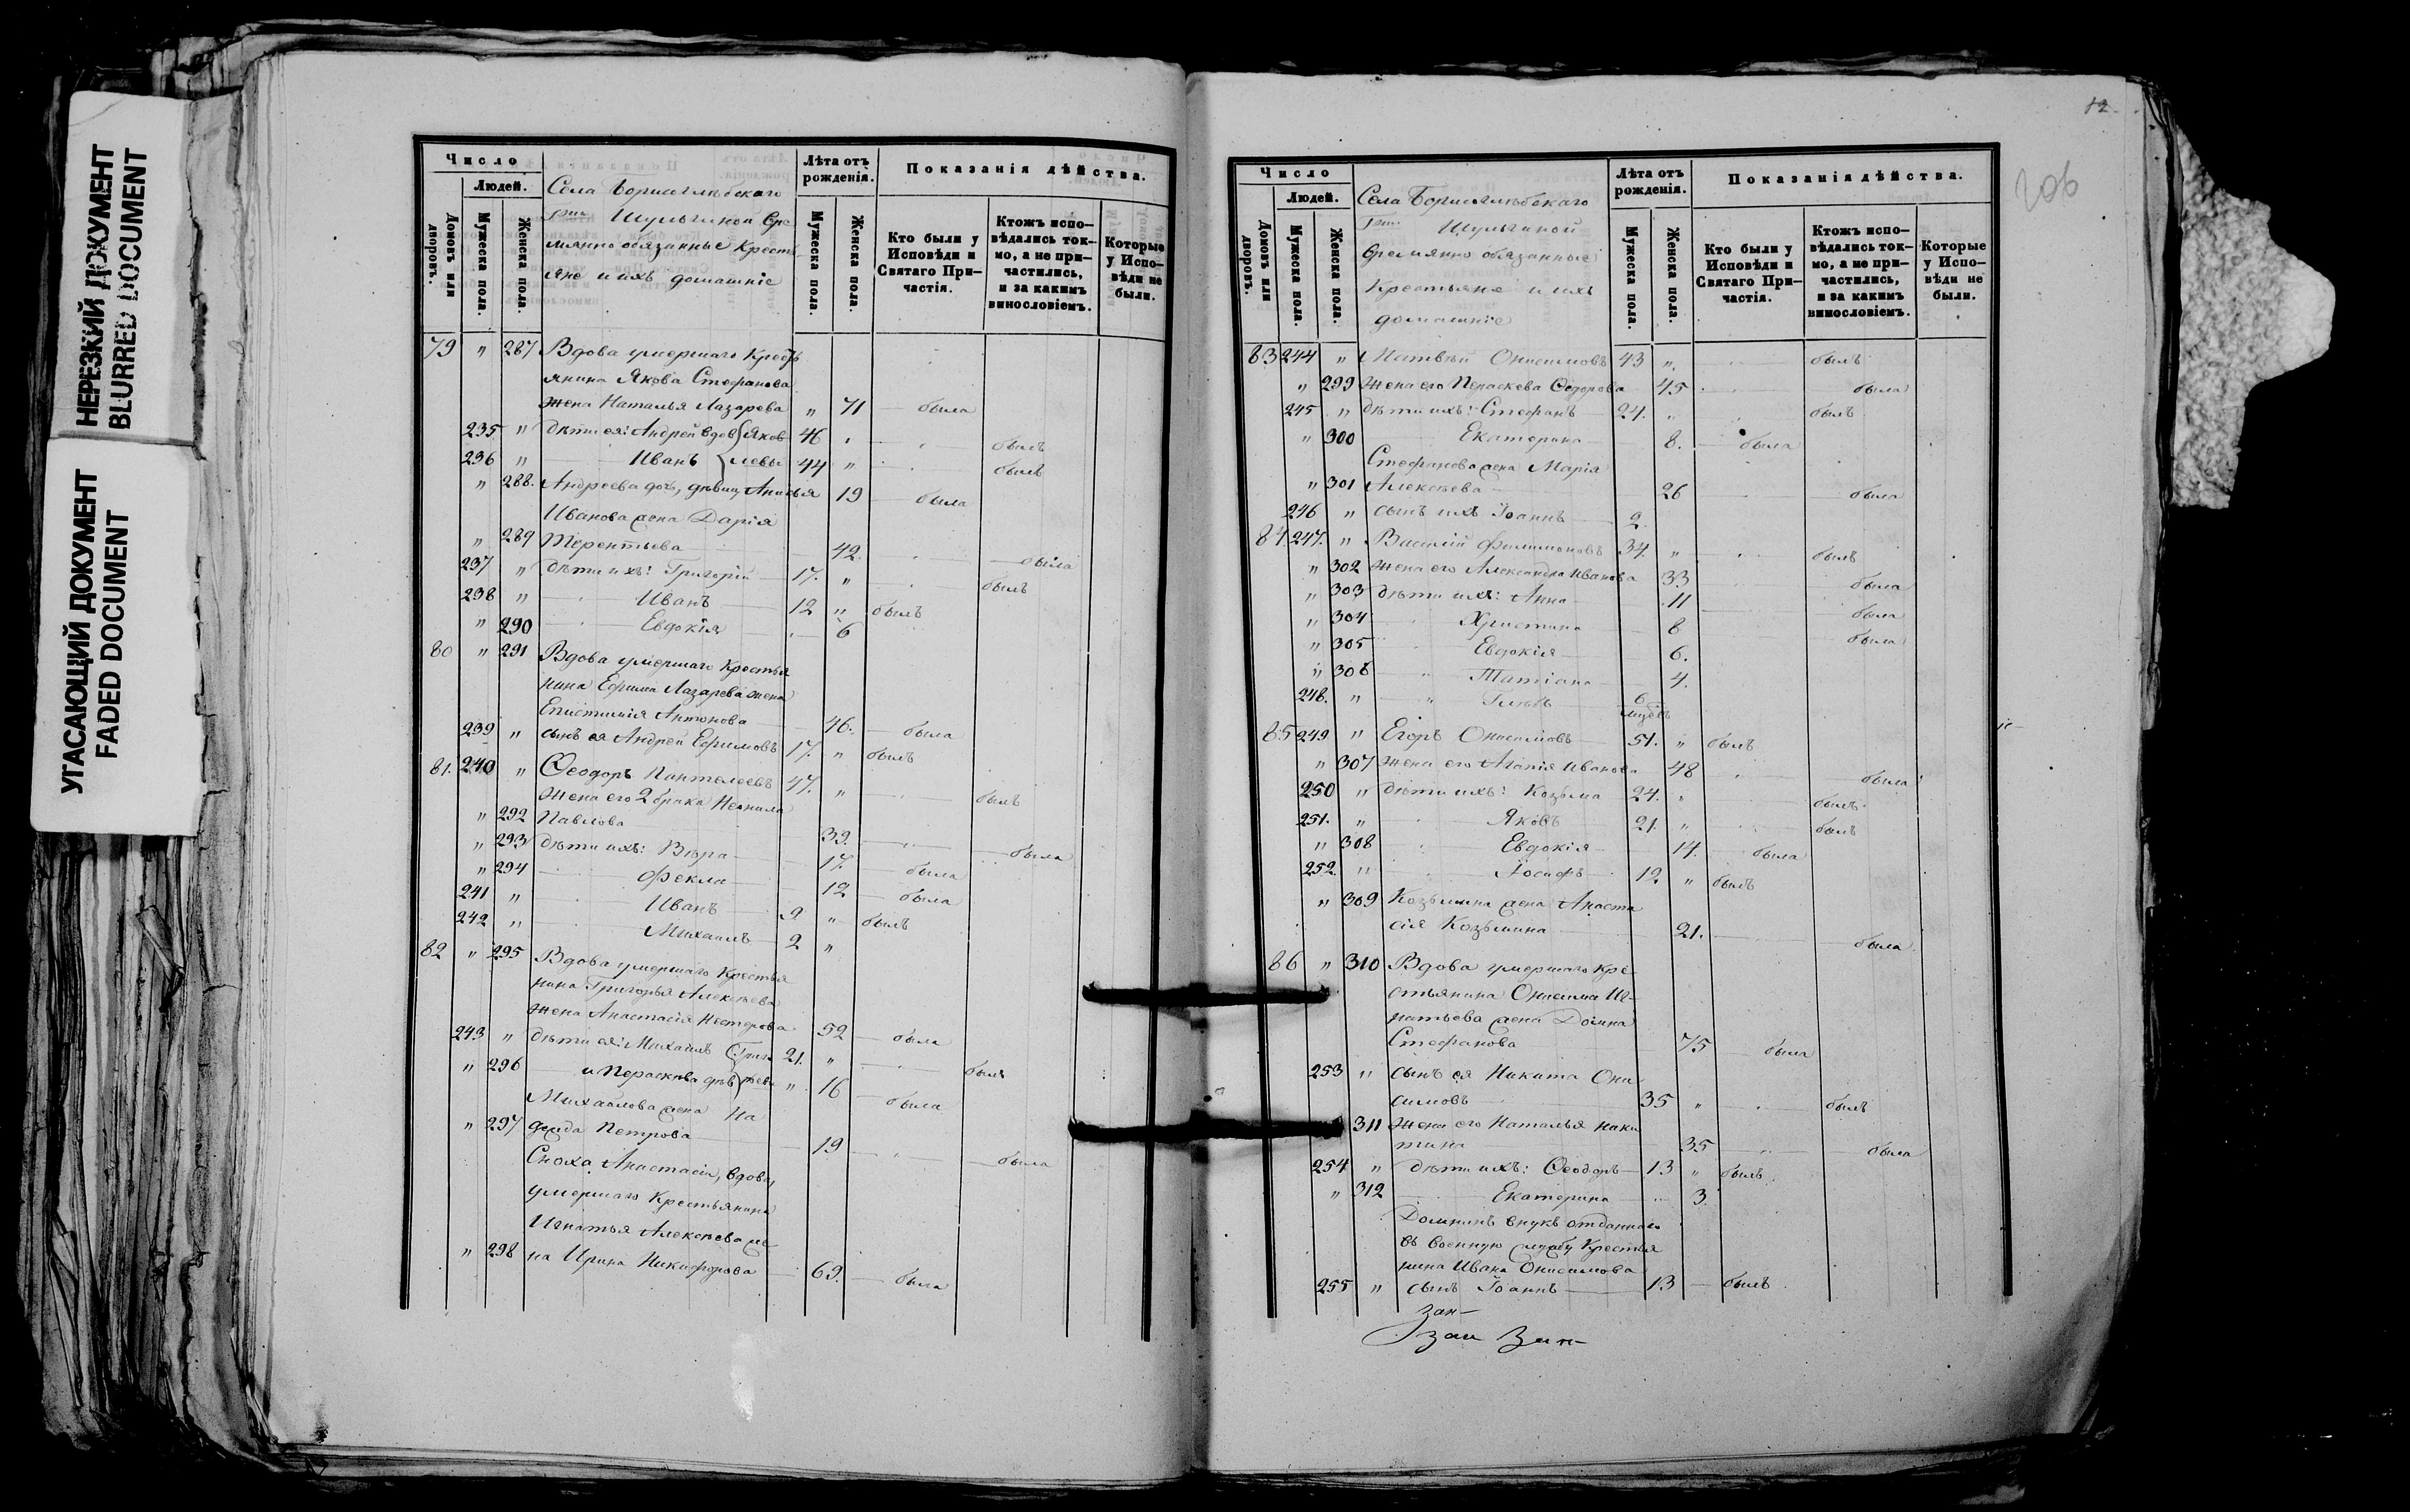 НЕРЕЗКИЙ ДОКУМЕНТ
BLURRED DOCUMENT
УГАСАЮЩИЙ ДОКУМЕНТ
FADED DOCUMENT
Число
Людей.
Домовъ или дворовъ.
Мужеска пола.
Женска пола.
Села Борисоглѣбскаго
Гжи Шульгиной Вре
мянно обязанные Кресть
яне и ихъ домашніе
Лѣта отъ рожденія.
Мужеска пола.
Женска пола.
Показанія дѣйства.
Кто были у Исповѣди и Святаго При-
частія.
Ктожъ испо-
вѣдались ток-
мо, а не при-
частились,
и за какимъ
винословіемъ.
Которые
у Испо-
вѣди не
были.
79 " 287 Вдова умершаго Кресть
янина Якова Стефанова
жена Наталья Лазарева " 71 была
235 " дѣти ея: Андрей вдов Яков 46 " былъ
236 " Иванъ левы 44 " былъ
" 288. Андреева доч, дѣвиц 19 была
Иванова жена Дарія
" 289 Терентьева 42. была
237 " дѣти ихъ: Григорій 17. " былъ
238 " Иванъ 12 " былъ
" 290 Евдокія 6
80 " 291 Вдова умершаго Крестья
нина Ефима Лазарева жена
Епистимія Антонова 46. была
239 " сынъ ея Андрей Ефимовъ 17. " былъ
81. 240 " Ѳеодоръ Пантелеевъ 47. " былъ
жена его 2 брака Неонила
" 292 Павлова 39. была
" 293 дѣти ихъ: Вѣра 17. была
" 294 Фекла 12 была
241 " Иванъ 9 " былъ
242 " Михаилъ 2 "
82 " 295 Вдова умершаго Крестья
нина Григорья Алексѣева
жена Анастасія Нестерова 52 была
243 " дѣти ея: Михаилъ Григо 21. " былъ
" 296 и Параскева дѣв рьевы " 16 была
Михайлова жена На
" 297 дежда Петрова 19 была
Сноха Анастасіи, вдова
умершаго Крестьянина
Игнатья Алексѣева же
" 298 на Ирина Никифорова 69. была
12.
206
Число
Людей.
Домовъ или дворовъ.
Мужеска пола.
Женска пола.
Села Борисоглѣбскаго
Гжи Шульгиной
Времянно обязанные
Крестьяне и ихъ
домашніе
Лѣта отъ рожденія.
Мужеска пола.
Женска пола.
Показанія дѣйства.
Кто были у Исповѣди и Святаго При-
частія.
Ктожъ испо-
вѣдались ток-
мо, а не при-
частились,
и за какимъ
винословіемъ.
Которые
у Испо-
вѣди не
были.
83 244 " Матвѣй Онисимовъ 43 " былъ
" 299 жена его Параскева Ѳедорова 45 была
245 " дѣти ихъ: Стефанъ 24. " былъ
" 300 Екатерина 8. была
Стефанова жена Марія
" 301 Алексѣева 26 была
246 " сынъ ихъ Іоаннъ 2
84. 247. " Василій Филимоновъ 34. " былъ
" 302 жена его Александра Иванова 33 была
" 303 дѣти ихъ: Анна 11 была
" 304 Христина 8 была
" 305 Евдокія 6.
" 306 Татіана 4.
248. " " Глѣбъ 6
85 249 " Егоръ Онисимовъ 51. " былъ
" 307 жена его Агапія Иванова 48 была
250 " дѣти ихъ: Козьма 24. " былъ
251. " Яковъ 21. " былъ
" 308 Евдокія 14. была
252. " Іосифъ 12 " былъ
" 309 Козьмина жена Анаста
сія Козьмина 21. была
86 " 310 Вдова умершаго Кре
стьянина Онисима Иг-
натьева жена Домна
Стефанова 75 была
253 " сынъ ея Никита Они
симовъ 35 " былъ
311 жена его Наталья Ники
тина 35 была
254 " дѣти ихъ: Ѳеодоръ 13 " былъ
" 312 Екатерина 3
Домнинъ внукъ отданнаго
въ военную службу Крестья
нина Ивана Онисимова
255 " сынъ Іоаннъ 13 былъ